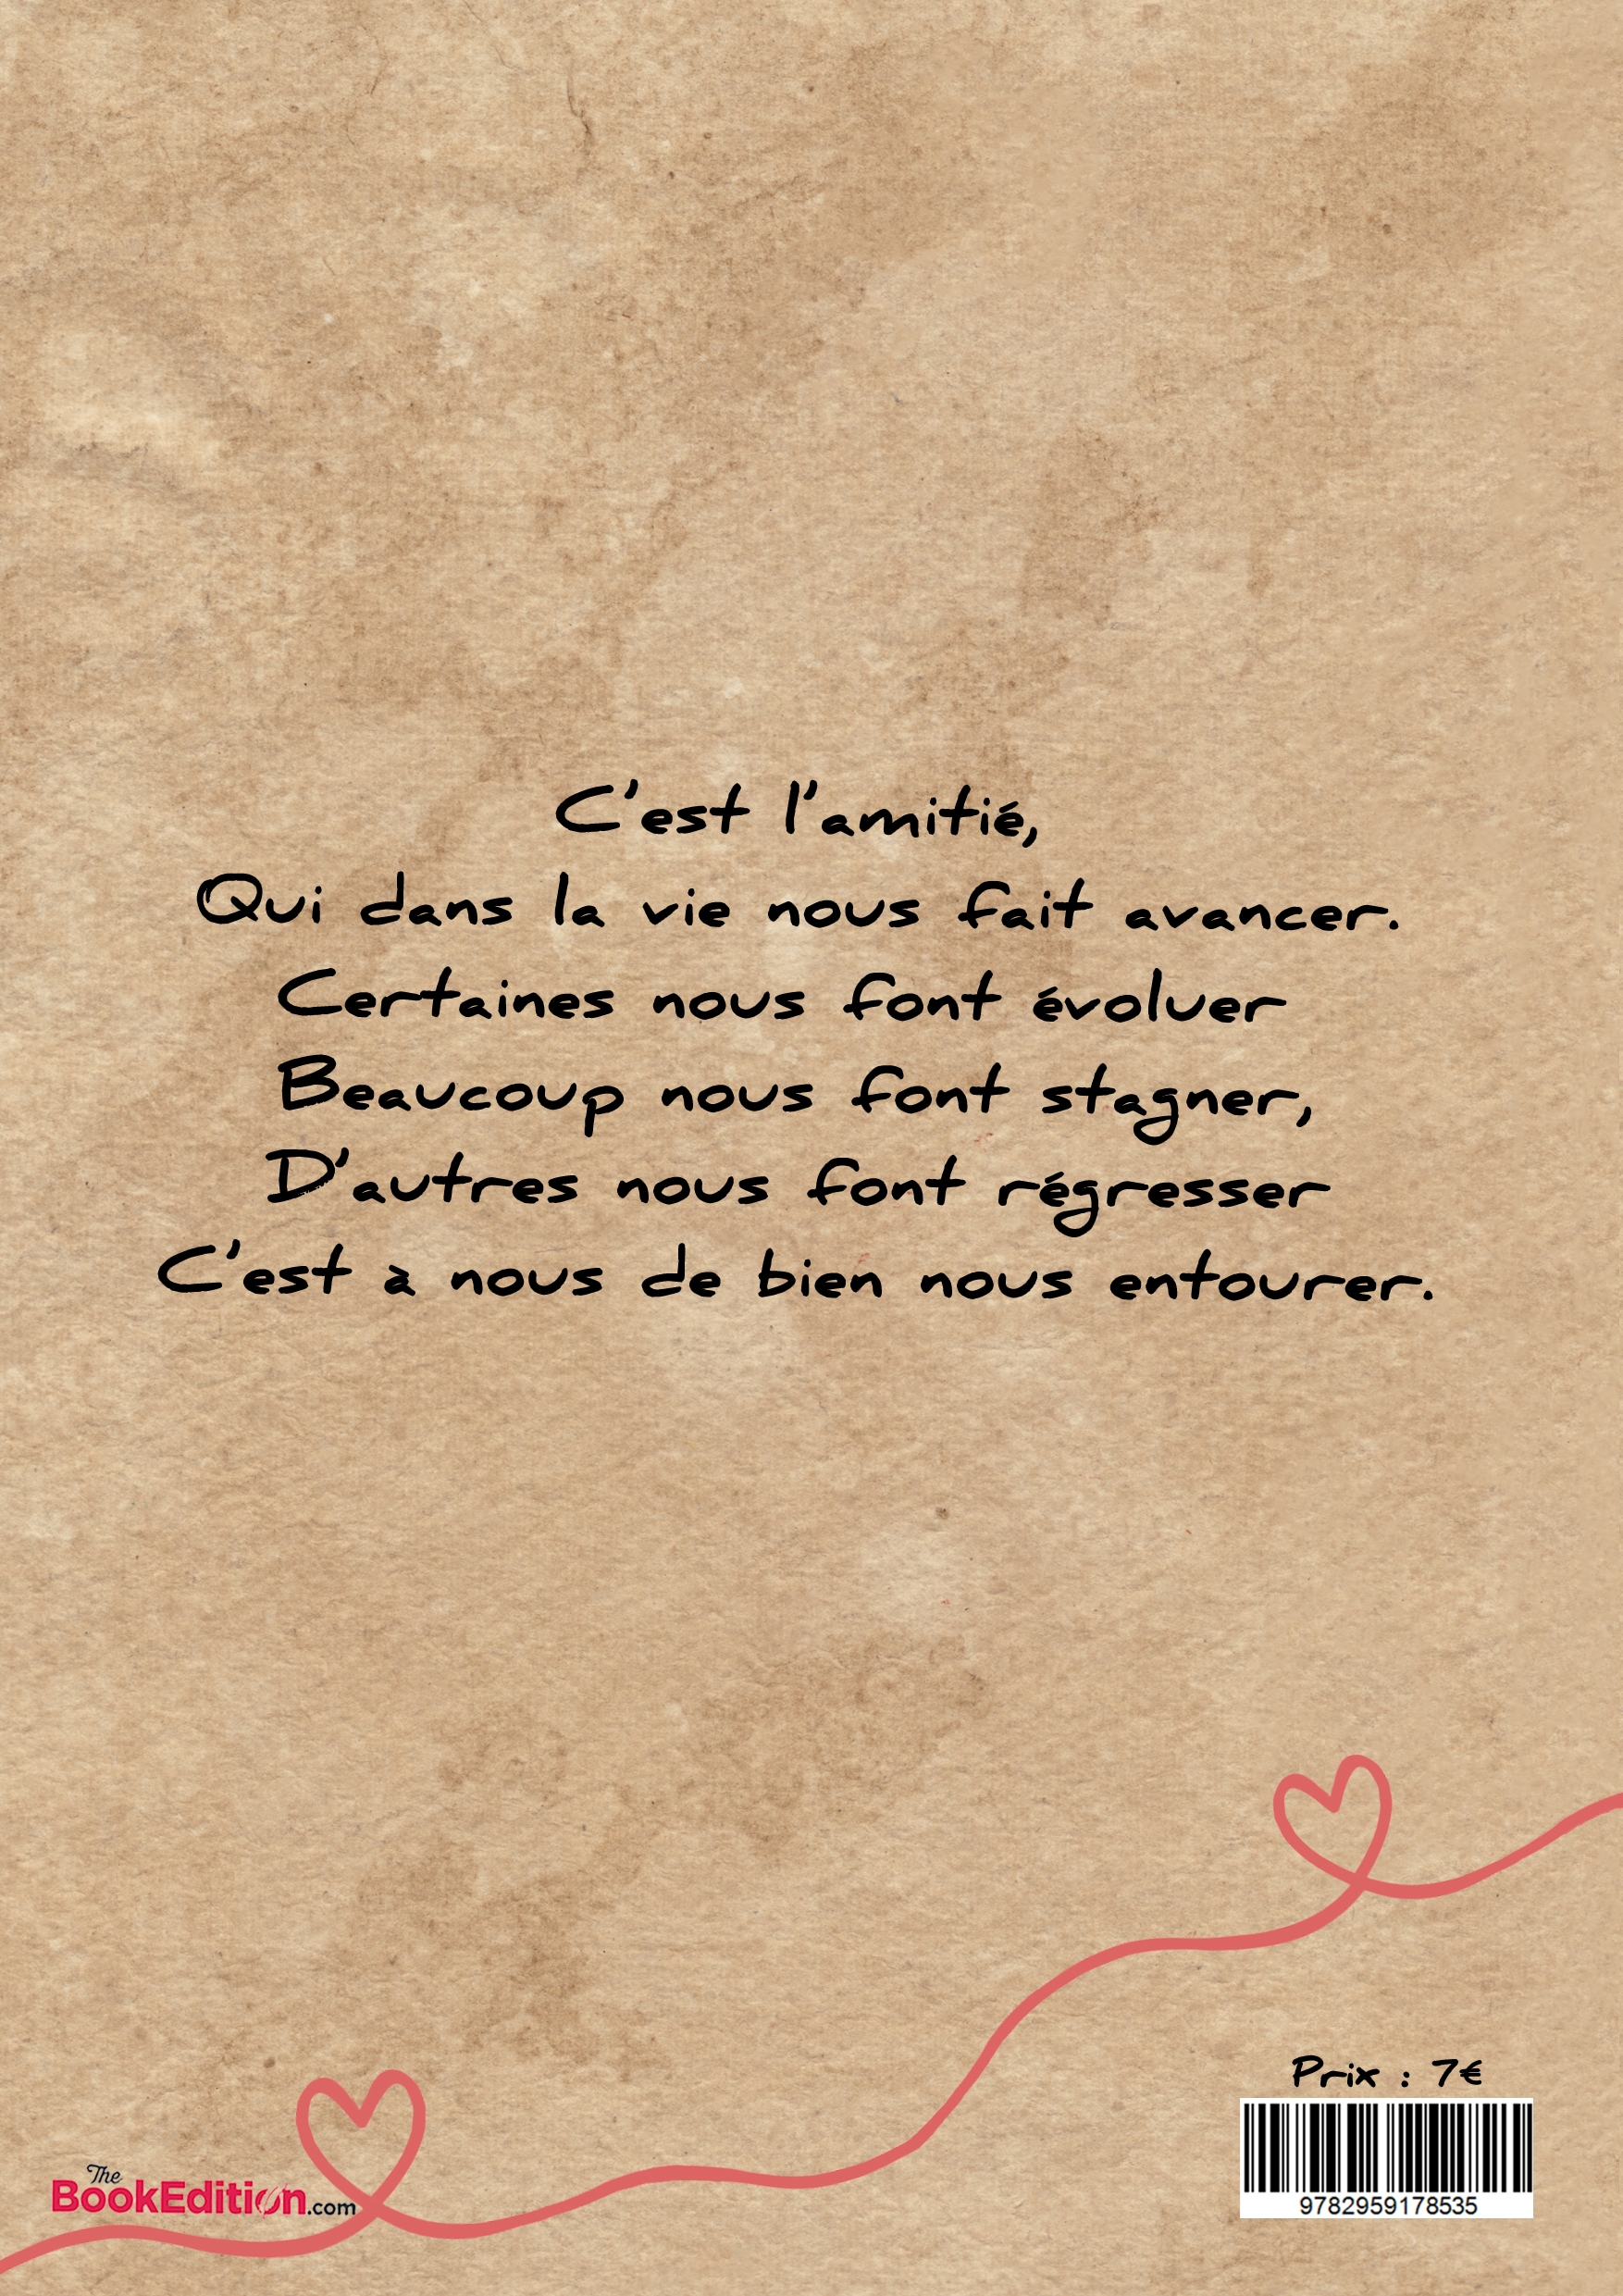 C'est l'amitié,
Qui dans la vie nous fait avancer.
Certaines nous font évoluer
Beaucoup nous font stagner,
D'autres nous font régresser
C'est à nous de bien nous entourer.
Prix : 7€
9782959178535
The
BookEdition.com